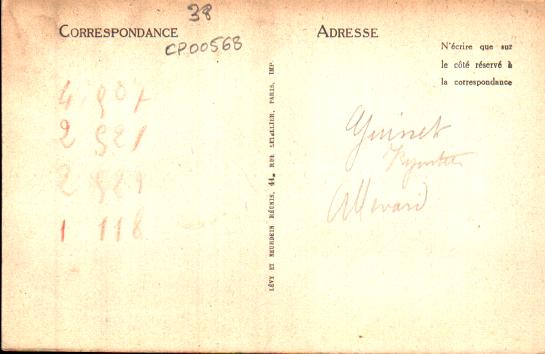 38
CORRESPONDANCE
CP.00568
ADRESSE
N'écrire que sur
le côté réservé à
la correspondance
2 921
1 118
LÉVY ET NEURDEIN RÉUNIS, 44, RUE LETELLIER, PARIS, IMP
Guinet
Allevard